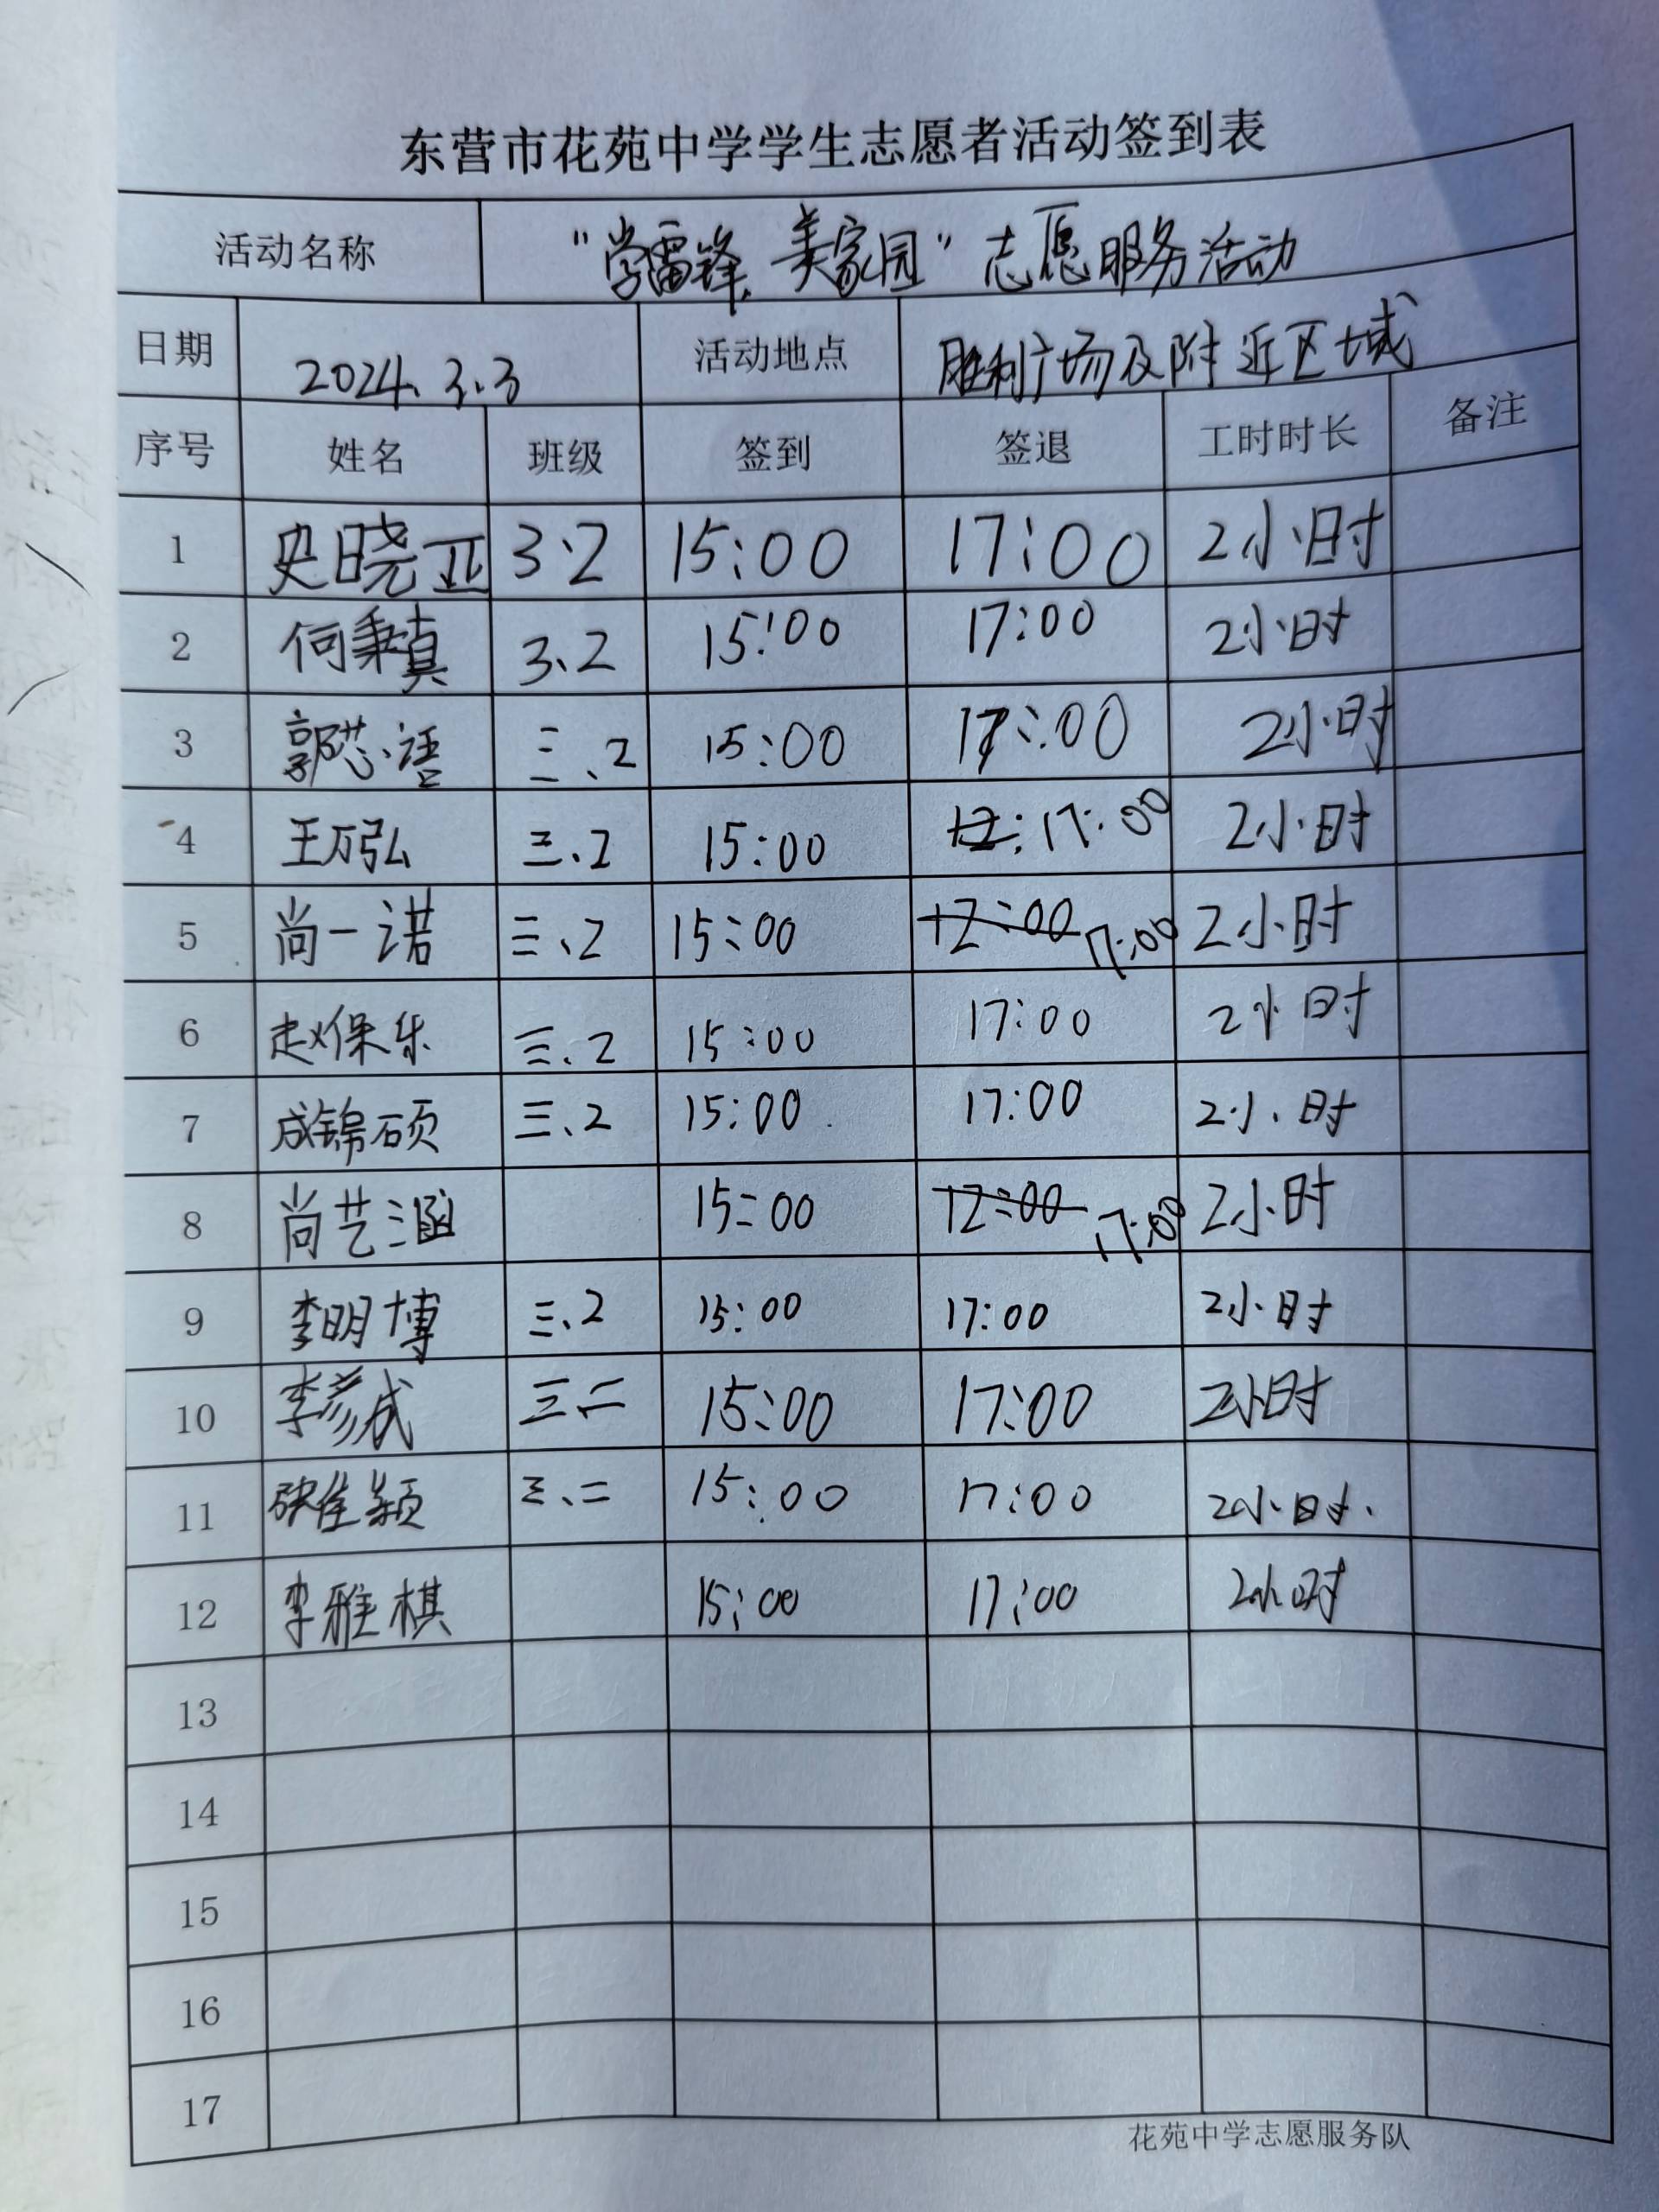 东营市花苑中学学生志愿者活动签到表
活动名称 “学雷锋、美家园”志愿服务活动
日期 2024.3.3 活动地点 胜利广场及附近区域
序号 姓名 班级 签到 签退 工时时长 备注
1 史晓亚 3.2 15:00 17:00 2小时
2 何秉真 3、2 15:00 17:00 2小时
3 郭芯语 三、2 15:00 17:00 2小时
4 王万弘 三、2 15:00 12: 17:00 2小时
5 尚一诺 三、2 15:00 12:00 17:00 2小时
6 赵保乐 三、2 15:00 17:00 2小时
7 成锦硕 三、2 15:00 17:00 2小时
8 尚艺涵 15:00 12:00 17:00 2小时
9 李明博 三、2 15:00 17:00 2小时
10 李彦成 三、二 15:00 17:00 2小时
11 佳颖 三、二 15:00 17:00 2小时.
12 李雅棋 15:00 17:00 2小时
13
14
15
16
17
花苑中学志愿服务队